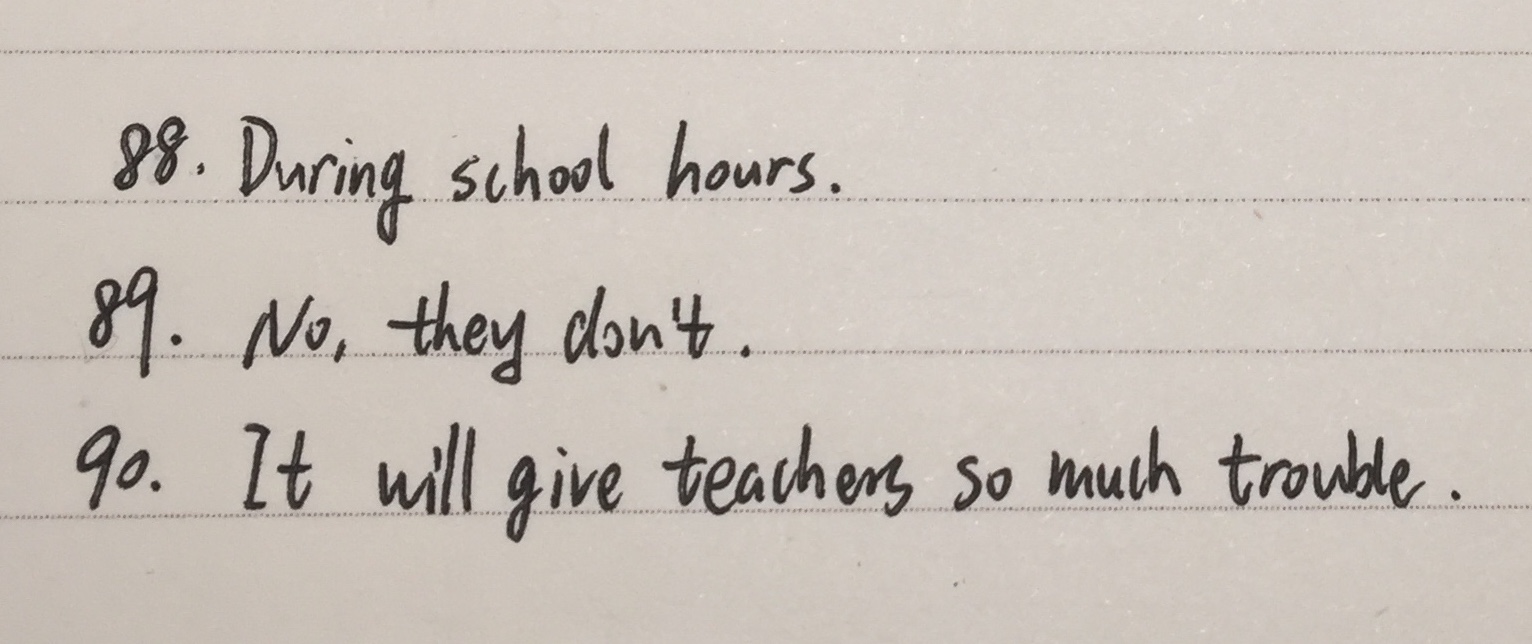 88. During school hours.
89. No, they don't.
90. It will give teachers so much trouble.